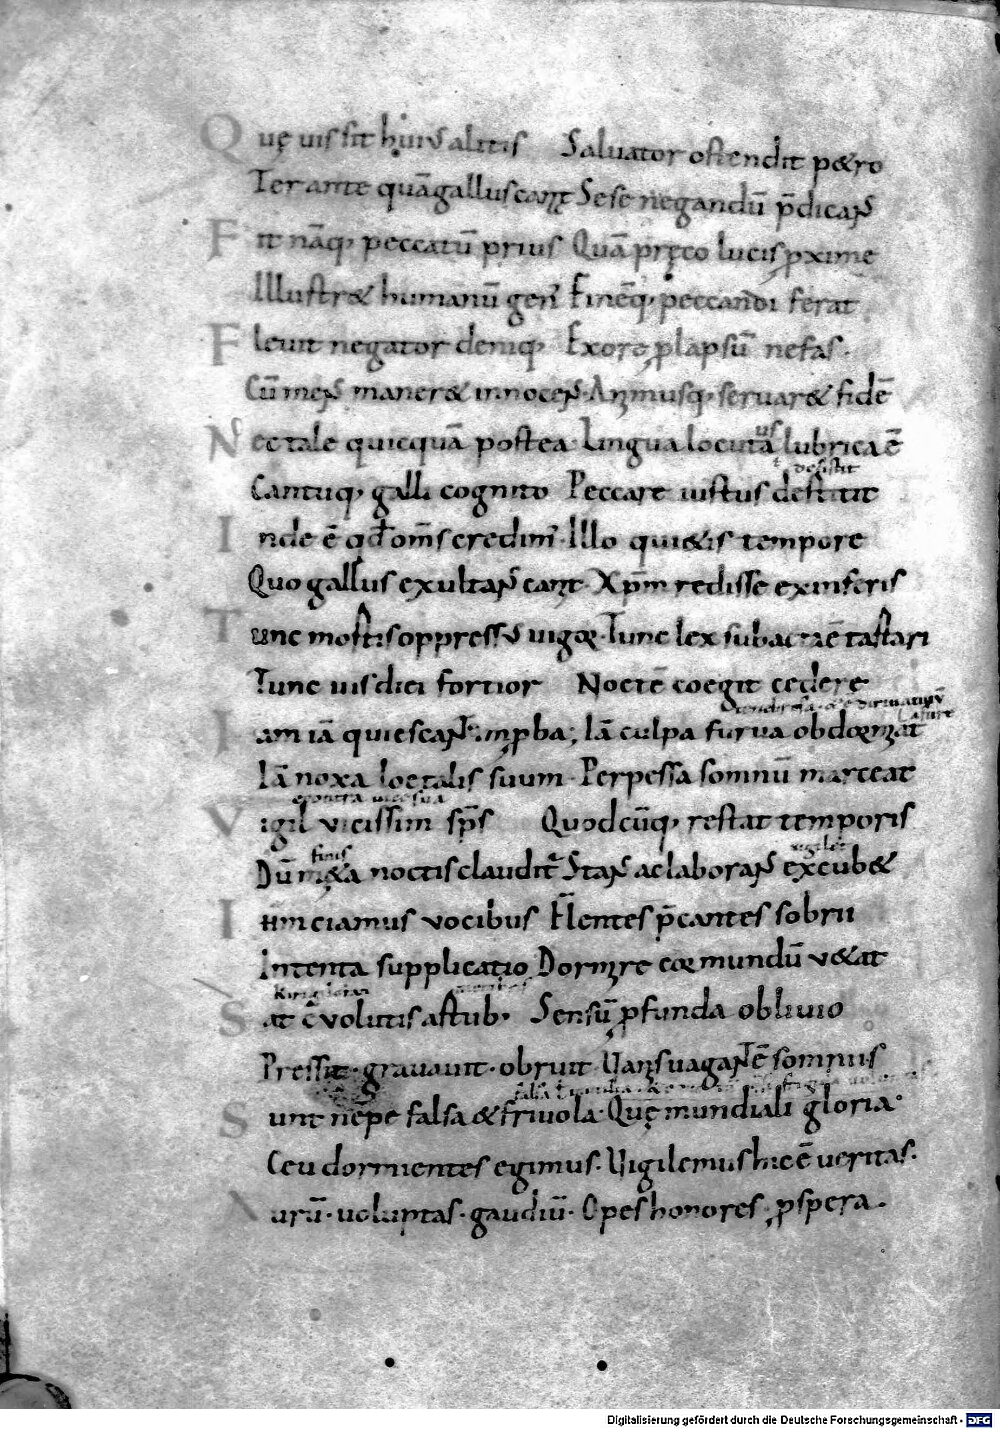 Quę uis sit huiꝰ alitis Saluator ostendit p&ro
Ter ante quā gallus canat Sese negandū p̄dicans
Fit nāq; peccatū prius Quā pręco lucis ꝓxime
Illustr& humanū genꝰ Finēq; peccandi ferat
Fleuit negator deniq; Ex ore ꝓlapsū nefas.
Cū mens maner& innocens. Animusq; seruar& fidē
Nec tale quicquā postea. Lingua locuta us lubrica ē
desistit
Cantuq; galli cognito Peccare iustus destitit
Inde ē qđ om̄s credimꝰ. Illo qui&is tempore
Quo gallus exultans canit. Xp̄m redisse ex inferis
Tunc mortis oppressꝰ uigor. Tunc lex subacta ē tartari
Tunc uis diei fortior Noctē coegit cedere
Iam iā quiescant imꝓba; Iā culpa furua obdormiat
Iā noxa loetalis suum. Perpessa somnū marceat
econtra uice sua
Vigil vicissim sp̄s Quodcūq; restat temporis
finis uigilet
Dū m&a noctis claudit̄ Stans ac laborans excub&
Ihm̄ ciamus vocibus Flentes p̄cantes sobrii
Intenta supplicatio Dormire cor mundū v&at
Sat cvolutis artub; Sensū ꝓfunda obliuio
Pressit. grauauit. obruit. Uanis uagantē somniis
Sunt nēpe falsa & friuola. Quę mundiali gloria.
Ceu dormientes egimus. Uigilemus hic ē ueritas.
Aurū. uoluptas. gaudiū. Opes honores ꝓspera.
Digitalisierung gefördert durch die Deutsche Forschungsgemeinschaft - DFG